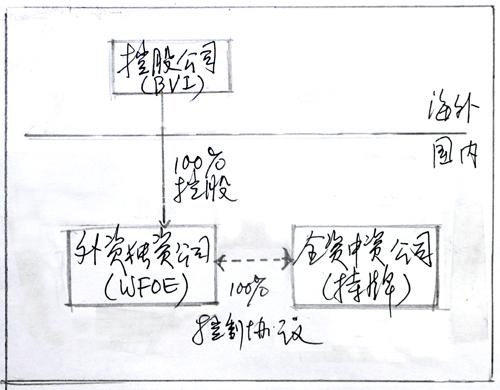 控股公司
(BVI)
海外
国内
100%
控股
外资独资公司
(WFOE)
全资中资公司
(持牌)
100%
控制协议